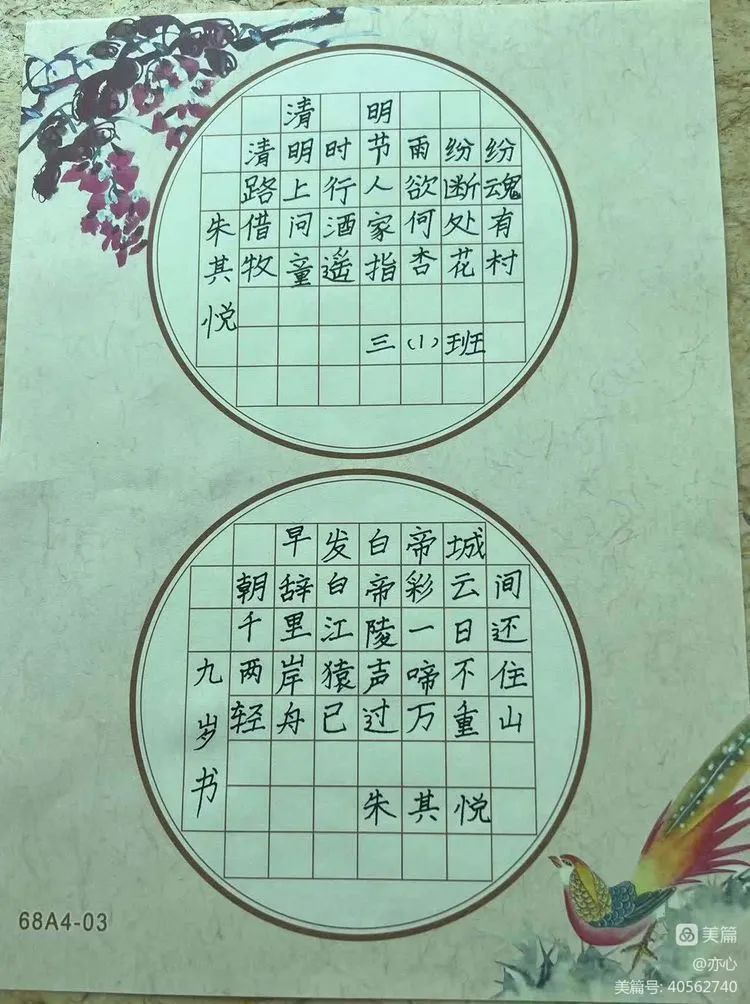 清明
清明时节雨纷纷
路上行人欲断魂
借问酒家何处有
牧童遥指杏花村
三(1)班
朱其悦
早发白帝城
朝辞白帝彩云间
千里江陵一日还
两岸猿声啼不住
轻舟已过万重山
朱其悦
九岁书
68A4-03
美篇
@亦心
美篇号: 40562740